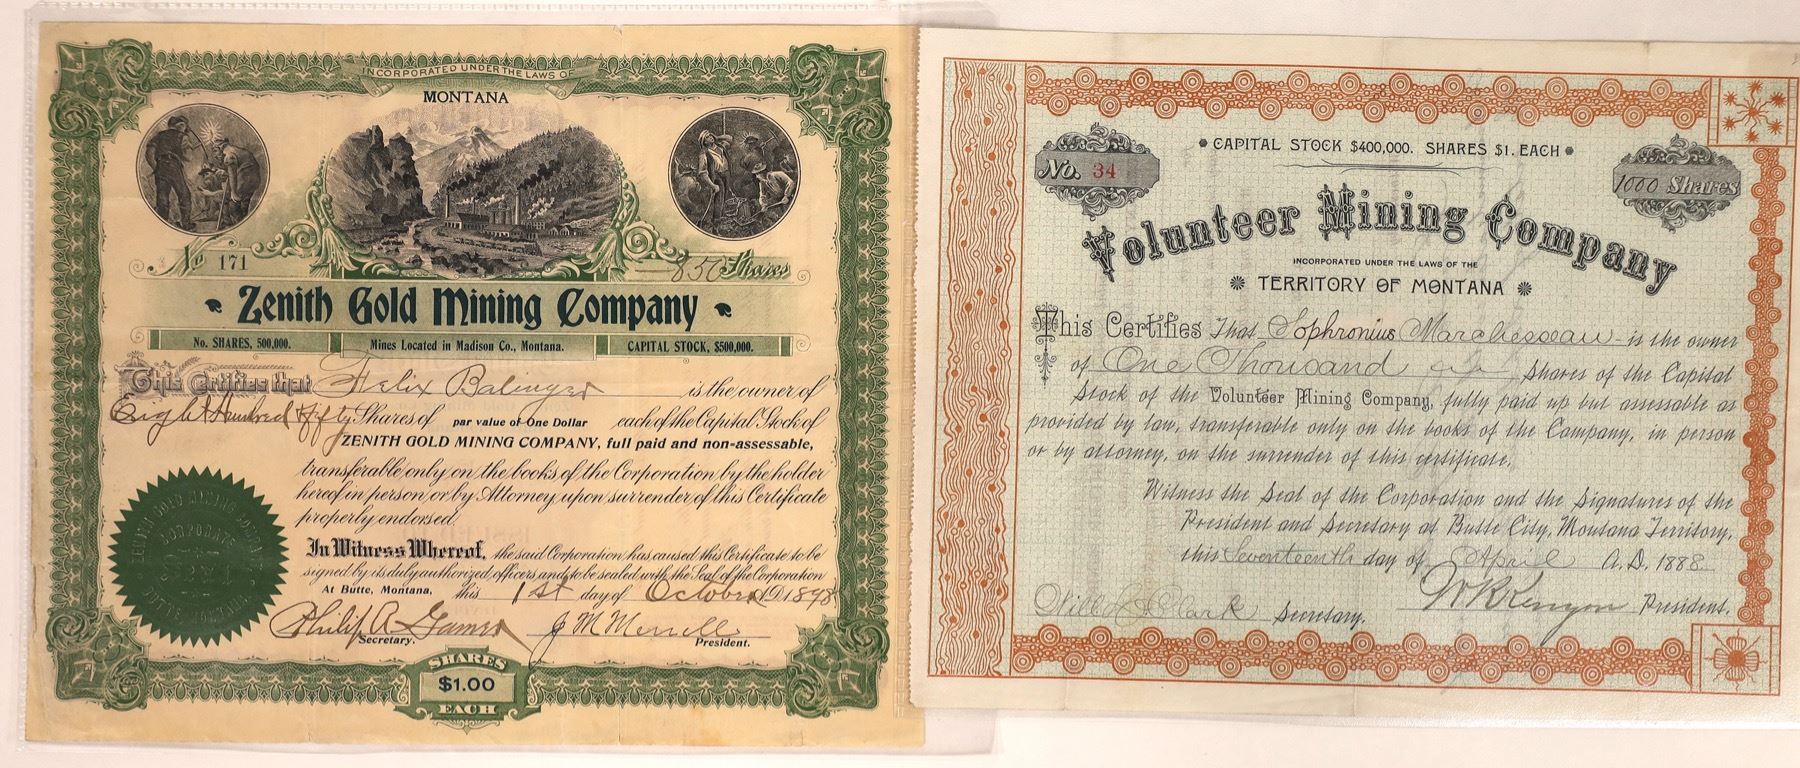 INCORPORATED UNDER THE LAWS OF
MONTANA
No 171
850 Shares
Zenith Gold Mining Company
No. SHARES, 500,000.
Mines Located in Madison Co., Montana.
CAPITAL STOCK, $500,000.
This Certifies that Felix Balinger is the owner of
Eight Hundred Fifty Shares of par value of One Dollar each of the Capital Stock of
ZENITH GOLD MINING COMPANY, full paid and non-assessable,
transferable only on the books of the Corporation by the holder
hereof in person or by Attorney upon surrender of this Certificate
properly endorsed.
In Witness Whereof, the said Corporation has caused this Certificate to be
signed by its duly authorized officers and to be sealed with the Seal of the Corporation
At Butte, Montana, this 1st day of October A.D. 1898
Philip A
Secretary.
J M Merrill
President.
ZENITH GOLD MINING COMPANY
CORPORATE
SEAL
BUTTE, MONTANA.
SHARES
$1.00
EACH
CAPITAL STOCK $400,000. SHARES $1. EACH
No. 34
1000 Shares
Volunteer Mining Company
INCORPORATED UNDER THE LAWS OF THE
TERRITORY OF MONTANA
This Certifies That Sophronius Marchesseau is the owner
of One Thousand Shares of the Capital
Stock of the Volunteer Mining Company, fully paid up but assessable as
provided by law, transferable only on the books of the Company, in person
or by attorney, on the surrender of this certificate.
Witness the Seal of the Corporation and the Signatures of the
President and Secretary at Butte City, Montana Territory,
this Seventeenth day of April A.D. 1888
Clark Secretary.
W R Kenyon President.